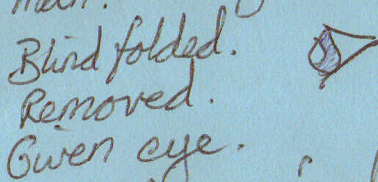 man.
Blindfolded.
Removed.
Given eye.